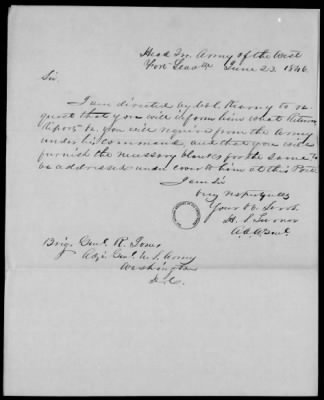 Head Qrs. Army of the West
Fort Leavth June 23. 1846.
Sir
I am directed by Col. Kearny to re-
quest that you will inform him what Returns
Reports &c you will require from the Army
under his command, and that you will
furnish the necessary blanks for the same to
be addressed under cover to him at this Post
I am Sir
Very respectfully
Your Ob. Servt.
H. S. Turner
A.A.A. Genl.
Brig. Genl. R. Jones
Adjt. Genl. U. S. Army
Washington
D.C.